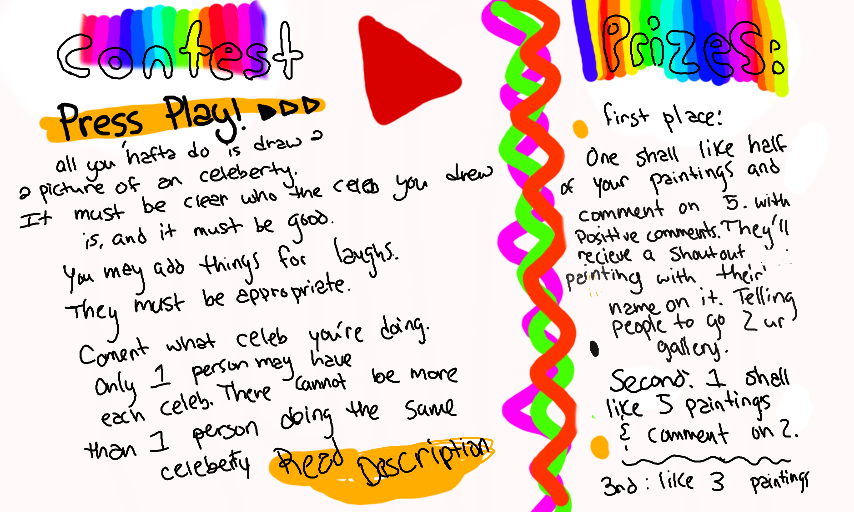 Contest
Press Play!
all you hafta do is draw a
a picture of an celeberty.
It must be clear who the celeb you drew
is, and it must be good.
You may add things for laughs.
They must be appropriate.
Coment what celeb you're doing.
Only 1 person may have
each celeb. There cannot be more
than 1 person doing the same
celeberty
Read Description
Prizes:
first place:
One shall like half
of your paintings and
comment on 5. with
positive comments. They'll
recieve a shoutout
painting with their
name on it. Telling
people to go 2 ur
gallery.
Second: 1 shall
like 5 paintings
& comment on 2.
3nd: like 3 paintings